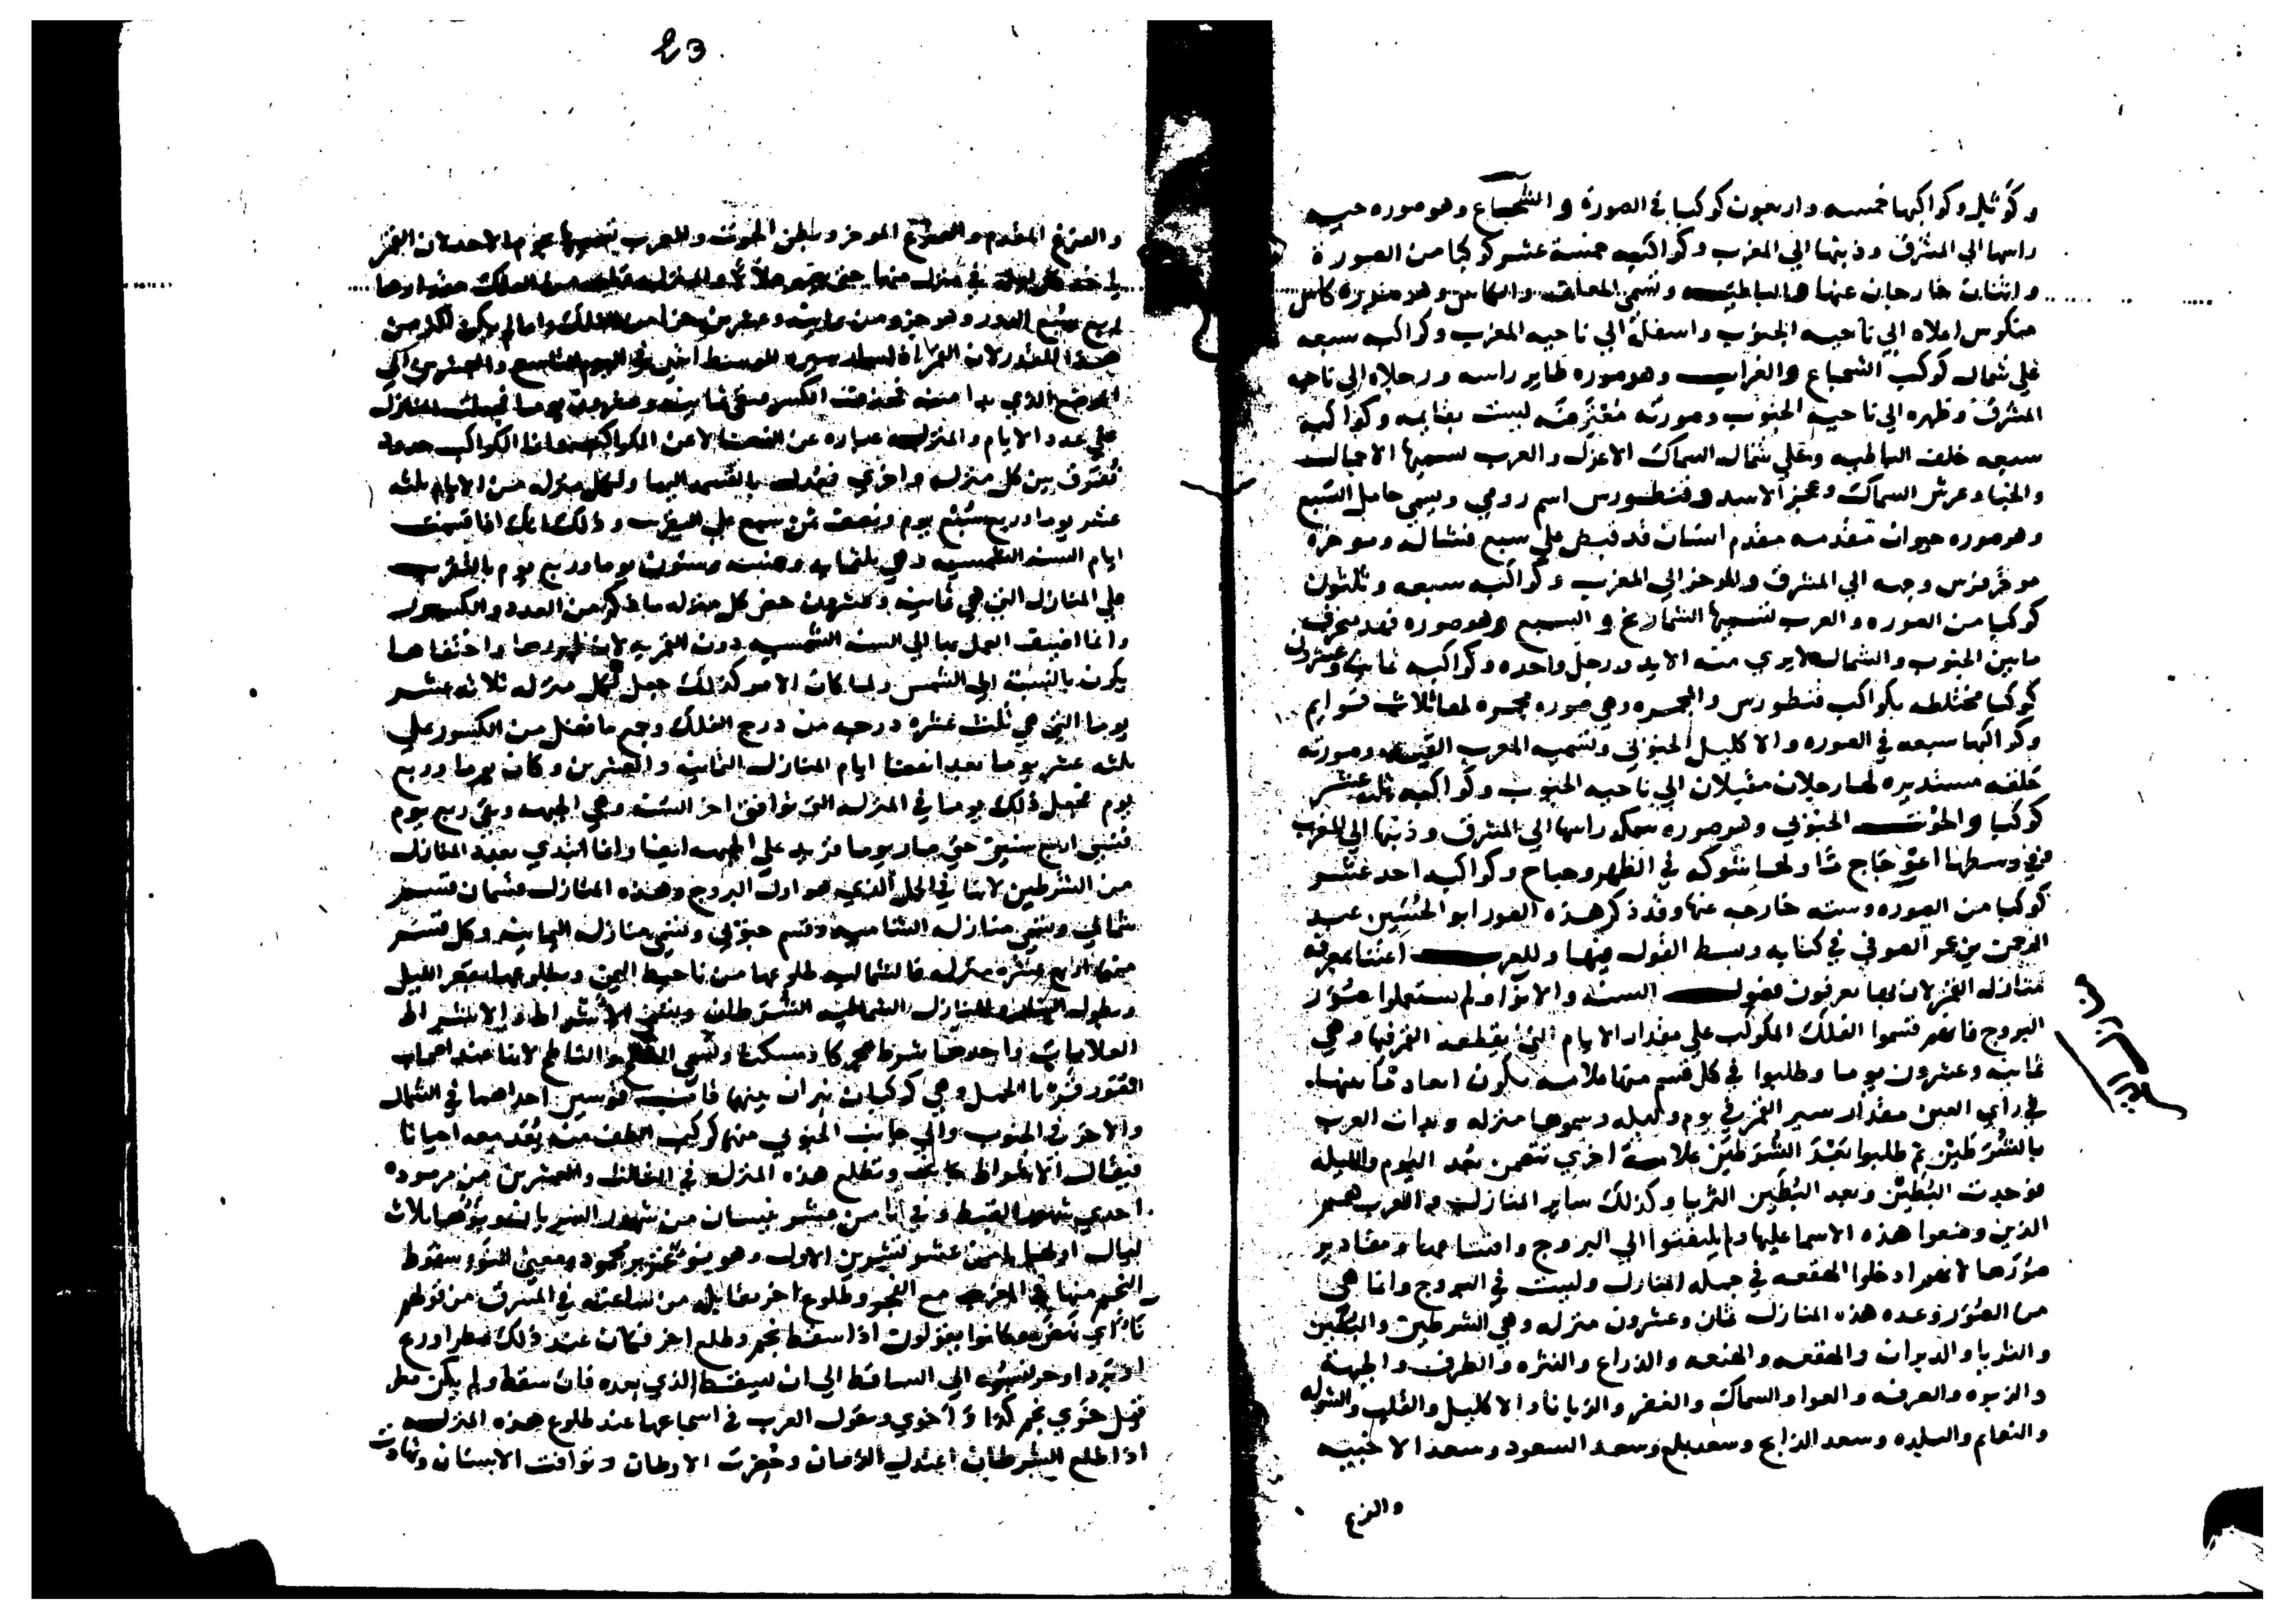 وكوثل وكواكبها خمسه واربعون كوكبا في الصورة والشجاع وهو صوره حيه
راسها الي المشرق وذنبها الي المغرب وكواكبه خمسة عشر كوكبا من الصورة
واثنان خارجان عنها والباطيه وتسمي المعلف والكاس وهو صوره كاس
منكوس اعلاه الي ناحيه الجنوب واسفله الي ناحيه المغرب وكواكبه سبعه
علي شمال كوكب الشجاع والغراب وهو صوره طاير راسه ورجلاه الي ناحيه
المشرق وظهره الي ناحيه الجنوب وصورته ليست بقايمه وكواكبه
سبعه خلف الباطيه وعلي شمال السماك الاعزل والعرب تسميها الاجمال
والخبا وعرش السماك وعجز الاسد وقنطورس اسم رومي ويسمي حامل السبع
وهو صوره حيوان مقدمه مقدم انسان قد قبض علي سبع بشماله وموخره
موخر فرس وجهه الي المشرق والموخر الي المغرب وكواكبه سبعه وثلثون
كوكبا من الصوره والعرب تسميها الشماريخ والسبع وهو صوره فهد منحرف
مابين الجنوب والشمال لا يري منه الا يد ورجل واحده وكواكبه ثمانيه وعشرون
كوكبا مختلطه بكواكب قنطورس والمجمره وهي صوره مجمره لها ثلاث قوايم
وكواكبها سبعه في الصوره والاكليل الجنوبي وتسميه العرب القبه وصورته
حلقه مستديره لها رجلان مقبلان الي ناحيه الجنوب وكواكبه ثلثه عشر
كوكبا والحوت الجنوبي وهو صوره سمكه راسها الي المشرق وذنبها الي المغرب
وفي وسطها اعوجاج ما ولها شوكه في الظهر وجناح وكواكبه احد عشر
كوكبا من الصوره وسته خارجه عنها وقد ذكر هذه الصور ابو الحسين عبد
الرحمن بن عمر الصوفي في كتابه وبسط القول فيها وللعرب اعتنا بمعرفه
منازل القمر لان بها يعرفون فصول السنه والانوا ولم يستعملوا صور
البروج فانهم قسموا الفلك المكوكب علي مقدار الايام التي يقطعه القمر فيها وهي
ثمانيه وعشرون يوما وطلبوا في كل قسم منها علامه يكون ابعاد ما بينها
في راي العين مقدار سير القمر في يوم وليله وسموها منزله وبدات العرب
بالشرطين ثم طلبوا بعد الشرطين علامة اخري تتضمن بعد اليوم والليله
فوجدت البطين وبعد البطين الثريا وكذلك ساير المنازل والعرب هم
الذين وضعوا هذه الاسما عليها ولم يلتفتوا الي البروج واقسامها ومقادير
صورها لانهم ادخلوا الهقعه في جمله المنازل وليست في البروج وانما هي
من الصور وعده هذه المنازل ثمان وعشرون منزله وهي الشرطين والبطين
والثريا والدبران والهقعه والهنعه والذراع والنثره والطرف والجبهة
والزبره والصرفه والعوا والسماك والغفر والزبانا والاكليل والقلب والشوله
والنعايم والبلده وسعد الذابح وسعد بلع وسعد السعود وسعد الاخبيه
والفرغ
23
والفرغ المقدم والفرغ الموخر وبطن الحوت والعرب تسميها نجوم الاخذ لان القمر
ياخذ كل ليله في منزل منها حتي يصير هلالا والمنزله من الفلك مقدارها
اربع سبع الدور وهو جزو من ثمانيه وعشرين جزا من الفلك وانما لم يكن اكثر من
هذا المقدر لان القمر اذا سار سيره الموسط انتهي في اليوم التاسع والعشرين الي
الموضع الذي بدا منه فحذفت الكسر فبقي ثمانيه وعشرون يوما فجعلت المنازل
علي عدد الايام والمنزله عباره عن الفضا لا عن الكواكب وانما الكواكب حدود
تفرق بين كل منزله واخري فعدل بالقسمه اليها ولكل منزله من الايام ثلثه
عشر يوما وربع سبع يوم ونصف ثمن سبع علي التقريب وذلك انك اذا قسمت
ايام السنه الشمسيه وهي ثلثمايه وخمسه وستون يوما وربع يوم بالتقريب
علي المنازل التي هي ثمانيه وعشرون خص كل منزله ما ذكر من العدد والكسور
وانما اضيف العمل بها الي السنه الشمسيه دون القمريه لان ظهورها واختفاها
يكون بالنسبة الي الشمس ولما كان الامر كذلك جعل لكل منزله ثلاثه عشر
يوما التي هي ثلث عشره درجه من درج الفلك وجمع ما فضل من الكسور علي
ثلثه عشر يوما بعد انقضا ايام المنازل الثمانيه والعشرين وكان يوما وربع
يوم فجعل ذلك يوما في المنزله التي توافق اخر السنه وهي الجبهه وبقي ربع يوم
فنسي اربع سنين حتي صار يوما فزيد علي الجبهه ايضا وانما ابتدي بعدد المنازل
من الشرطين لانها في الحمل الذي هو اول البروج وهذه المنازل قسمان قسم
شمالي وتسمي منازله الشاميه وقسم جنوبي وتسمي منازله اليمانيه وكل قسم
منها اربع عشره منزله فالشماليه طلوعها من ناحيه اليمن وبطلوعها يقصر الليل
ويطول النهار والمنازل الشماليه الشرطان ويقال الاشراط والاشراط
العلامات واحدها شرط محركا ومسكنا وتسمي النطح والناطح لانها عند اصحاب
الصور قرنا الحمل وهي كوكبان نيران بينهما قاب قوسين احداهما في الشمال
والاخر في الجنوب والي جانب الجنوبي منهما كوكب الطف منه يعد معه احيانا
فيقال الاشراط وتطلع هذه المنزله في الثالث والعشرين من برموده
احدي شهور القبط وفي ثامن عشر نيسان من شهور السريان ونوها ثلاث
ليال اولها ثامن عشر تشرين الاول وهو نو غزير محمود ومعني النوء سقوط
النجم منها في المغرب مع الفجر وطلوع اخر يقابله من ساعته في المشرق من قولهم
ناء اي نهض وكانوا يقولون اذا سقط نجم وطلع اخر فكان عند ذلك مطر او ريح
او برد او حر نسبوه الي الساقط الي ان يسقط الذي بعده فان سقط ولم يكن مطر
قيل خوي نجم كذا واخوي وتقول العرب في اسجاعها عند طلوع هذه المنزله
اذا طلع الشرطان اعتدل الزمان وخضرت الاوطان وتوافت الاسنان وتهادت